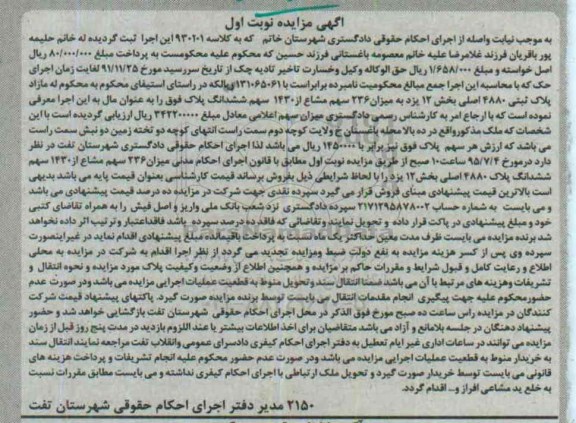 آگهی مزایده نوبت اول
به موجب نیابت واصله از اجرای احکام حقوقی دادگستری شهرستان خاتم که به کلاسه ۹۳۰۲۰۱ این اجرا ثبت گردیده له خانم حلیمه
پور باقریان فرزند غلامرضا علیه خانم معصومه باغستانی فرزند حسین که محکوم علیه محکومست به پرداخت مبلغ ۸۰/۰۰۰/۰۰۰ ریال
اصل خواسته و مبلغ ۱/۶۵۸/۰۰۰ ریال حق الوکاله وکیل وخسارت تاخیر تادیه چک از تاریخ سررسید مورخ ۹۱/۱۱/۲۵ لغایت زمان اجرای
حک که با محاسبه این اجرا جمع مبالغ محکومیت نامبرده برابراست با ۱۳۱۰۶۵۰۶۱ریالکه در راستای استیفای محکوم به محکوم له مازاد
پلاک ثبتی ۴۸۸۰ اصلی بخش ۱۲ یزد به میزان ۲۳۶ سهم مشاع از۱۴۳۰ سهم ششدانگ پلاک فوق را به عنوان مال به این اجرا معرفی
نموده است که با ارجاع امر به کارشناس رسمی دادگستری میزان سهم اعلامی معادل مبلغ ۳۴۲۲۰۰۰۰ ریال ارزیابی گردیده است با این
شخصات که ملک مذکورواقع در ده بالا محله باغستان خ ولایت کوچه دوم سمت راست انتهای کوچه دو تخته زمین دو نبش سمت راست
می باشد که ارزش هر سهم پلاک فوق نیز برابر با ۱۴۵۰۰۰ ریال می باشد لذا اجرای احکام حقوقی دادگستری شهرستان تفت در نظر
دارد درمورخ ۹۵/۷/۴ ساعت۱۰ صبح از طریق مزایده نوبت اول مطابق با قانون اجرای احکام مدنی میزان۲۳۶ سهم مشاع از ۱۴۳۰ سهم
ششدانگ پلاک ۴۸۸۰ اصلی بخش ۱۲ یزد را با لحاظ شرایطی ذیل بفروش برساند قیمت کارشناسی بعنوان قیمت پایه می باشد بدیهی
است بالاترین قیمت پیشنهادی مبنای فروش قرار می گیرد سپرده نقدی جهت شرکت در مزایده ده درصد قیمت پیشنهادی می باشد
و می بایست به شماره حساب ۲۱۷۱۲۹۵۸۷۸۰۰۲ سپرده دادگستری نزد شعب بانک ملی واریز و اصل فیش را به همراه تقاضای کتبی
خود و مبلغ پیشنهادی در پاکت قرار داده و تحویل نمایند وتقاضائی که فاقد ده درصد سپرده باشد فاقداعتبار و ترتیب اثر داده نخواهد
شد برنده مزایده می بایست ظرف مدت معین حداکثر یک ماه نسبت به پرداخت باقیمانده مبلغ پیشنهادی اقدام نماید در غیراینصورت
سپرده وی پس از کسر هزینه مزایده به نفع دولت ضبط ومزایده تجدید می گردد از نظر اجرا اقدام به شرکت در مزایده به محلی
اطلاع و رعایت کامل و قبول شرایط و مقررات حاکم بر مزایده و همچنین اطلاع از وضعیت وکیفیت پلاک مورد مزایده و نحوه انتقال و
تشریفات وهزینه های مرتبط با آن می باشد ضمنا انتقال سند وتحویل منوط به قطعیت عملیات اجرایی مزایده می باشد ودر صورت عدم
حضورمحکوم علیه جهت پیگیری انجام مقدمات انتقال می بایست توسط برنده مزایده صورت گیرد. پاکتهای پیشنهاد قیمت شرکت
کنندگان در مزایده راس ساعت ده صبح مورخ فوق الذکر در محل اجرای احکام حقوقی شهرستان تفت بازگشایی خواهد شد و حضور
پیشنهاد دهنگان در جلسه بلامانع و آزاد می باشد متقاضیان برای اخذ اطلاعات بیشتر یا عند اللزوم بازدید در مدت پنج روز قبل از زمان
مزایده می توانند در ساعات اداری غیر ایام تعطیل به دفتر اجرای احکام کیفری دادسرای عمومی وانقلاب تفت مراجعه نمایند انتقال سند
به خریدار منوط به قطعیت عملیات اجرایی مزایده می باشد ودر صورت عدم حضور محکوم علیه انجام تشریفات و پرداخت هزینه های
قانونی می بایست توسط خریدار صورت گیرد و تحویل ملک ارتباطی با اجرای احکام کیفری نداشته و می بایست مطابق مقررات نسبت
به خلع ید مشاعی افراز و... اقدام گردد.
۲۱۵۰ مدیر دفتر اجرای احکام حقوقی شهرستان تفت